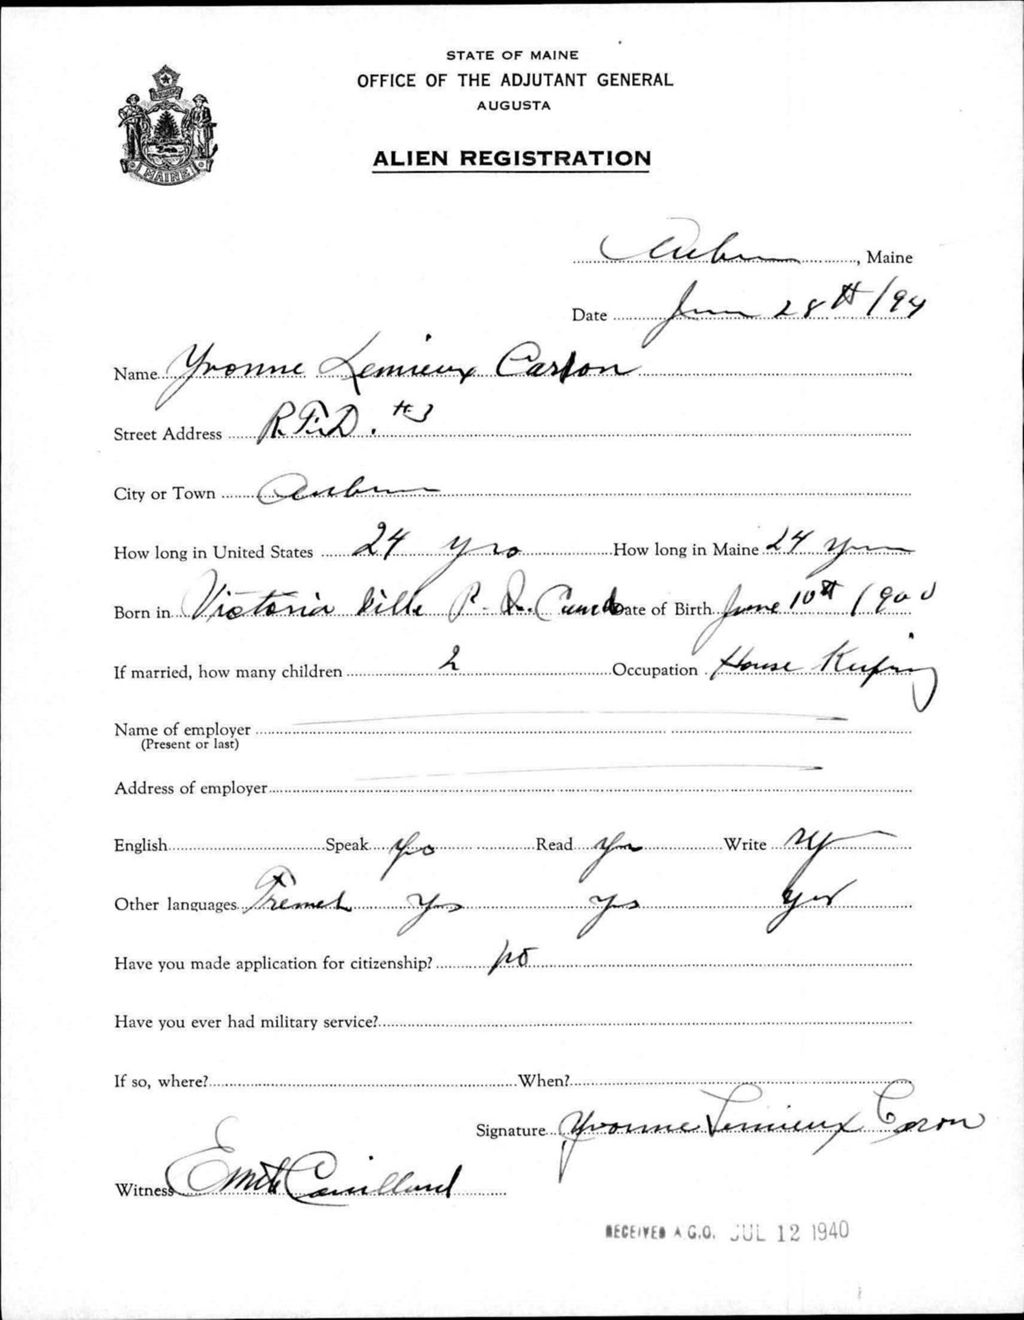 STATE OF MAINE
OFFICE OF THE ADJUTANT GENERAL
AUGUSTA
ALIEN REGISTRATION
MAINE
Auburn, Maine
Date June 28th/94
Name Yvonne Lemieux Carlon
Street Address R.F.D. #3
City or Town Auburn
How long in United States 24 yrs How long in Maine 24 years
Born in Victoria Ville P. Q. Canada Date of Birth June 10th 1900
If married, how many children 2 Occupation House Keeping
Name of employer
(Present or last)
Address of employer
English Speak yes Read yes Write
Other languages French yes yes yes
Have you made application for citizenship? no
Have you ever had military service?
If so, where? When?
Signature Yvonne Lemieux Caron
Witness Emile
RECEIVED A.G.O. JUL 12 1940